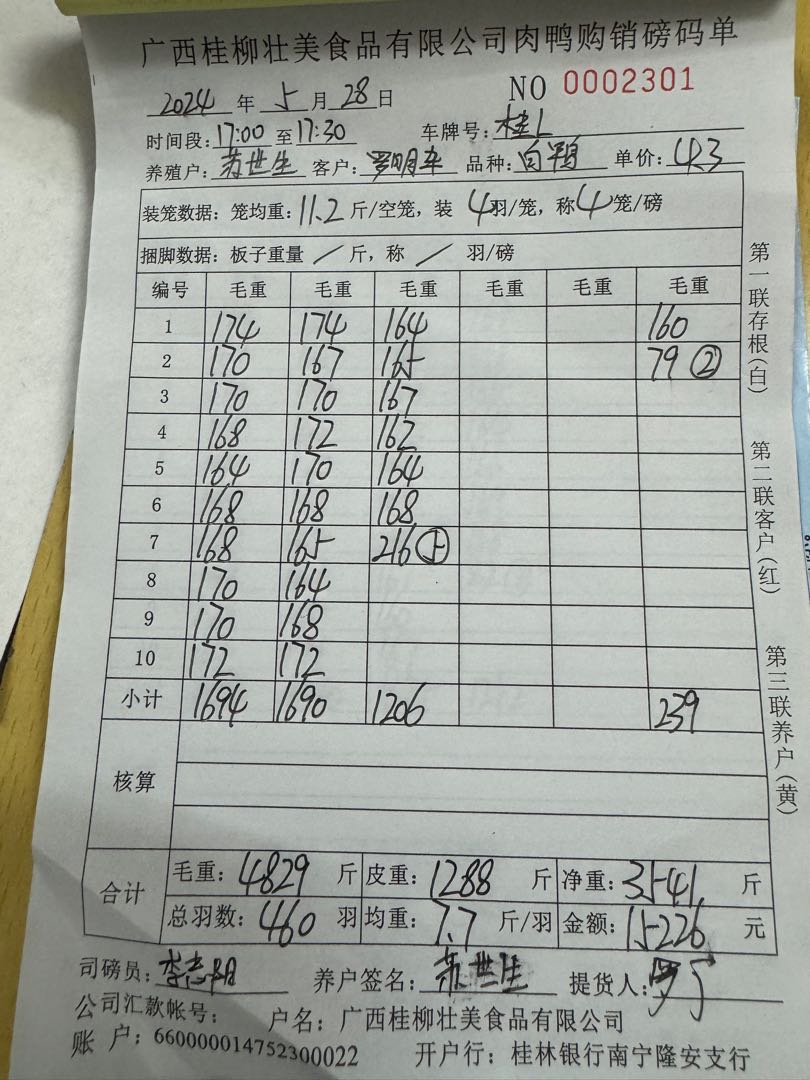 广西桂柳壮美食品有限公司肉鸭购销磅码单
2024 年 5 月 28 日 NO 0002301
时间段: 17:00 至 17:30 车牌号: 桂L
养殖户: 苏世生 客户: 罗明丰 品种: 白鸭 单价: 4.3
装笼数据: 笼均重: 11.2 斤/空笼, 装 4 羽/笼, 称 4 笼/磅
捆脚数据: 板子重量 / 斤, 称 / 羽/磅
编号 毛重 毛重 毛重 毛重 毛重 毛重
1 174 174 164 160
2 170 167 165 79 ②
3 170 170 167
4 168 172 162
5 164 170 164
6 168 168 168
7 168 165 216 ⑤
8 170 164
9 170 168
10 172 172
小计 1694 1690 1206 239
核算
合计
毛重: 4829 斤 皮重: 1288 斤 净重: 3541 斤
总羽数: 460 羽 均重: 7.7 斤/羽 金额: 15226 元
司磅员: 李志阳 养户签名: 苏世生 提货人:
公司汇款帐号: 户名: 广西桂柳壮美食品有限公司
账 户: 660000014752300022 开户行: 桂林银行南宁隆安支行
第一联存根(白)
第二联客户(红)
第三联养户(黄)